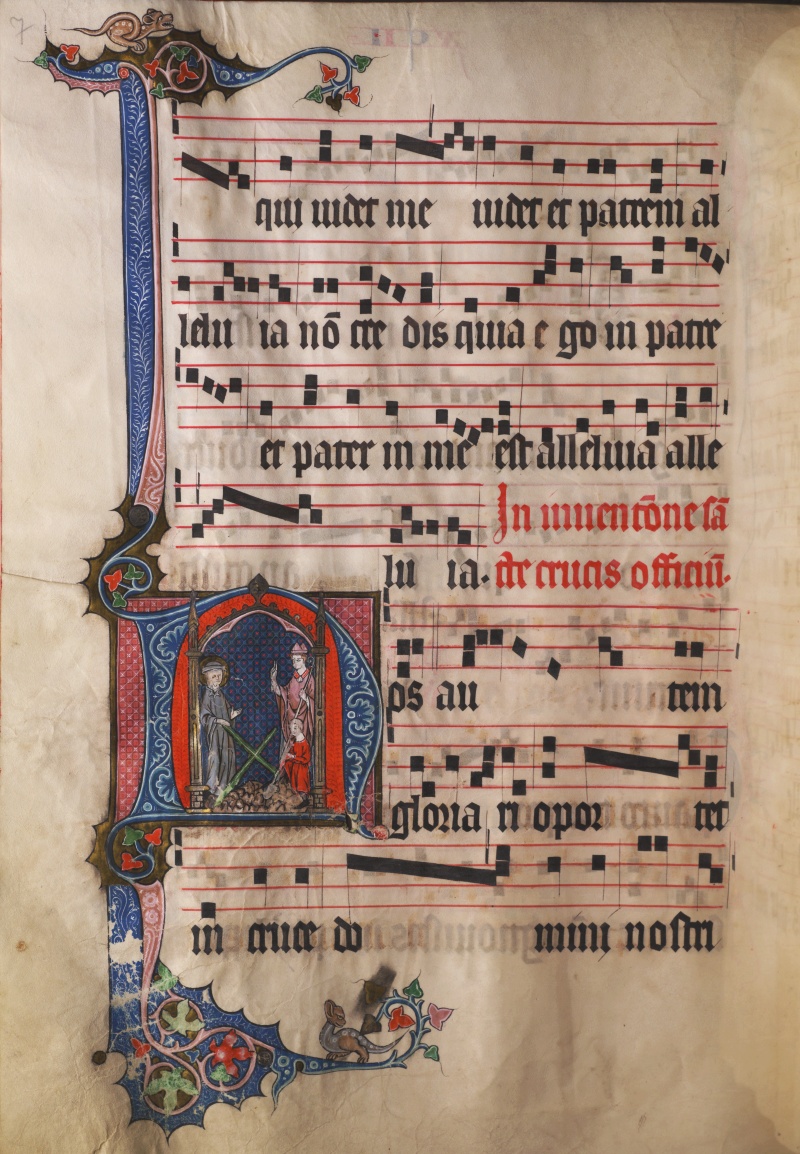 7
qui uidet me uidet et patrem al
lelu ia nō cre dis quia e go in patre
et pater in me est alleluia alle
lu ia. In inuentōne sā
cte crucis officiū.
Nos au tem
gloria ri opor tet
in cruce do mini nostri